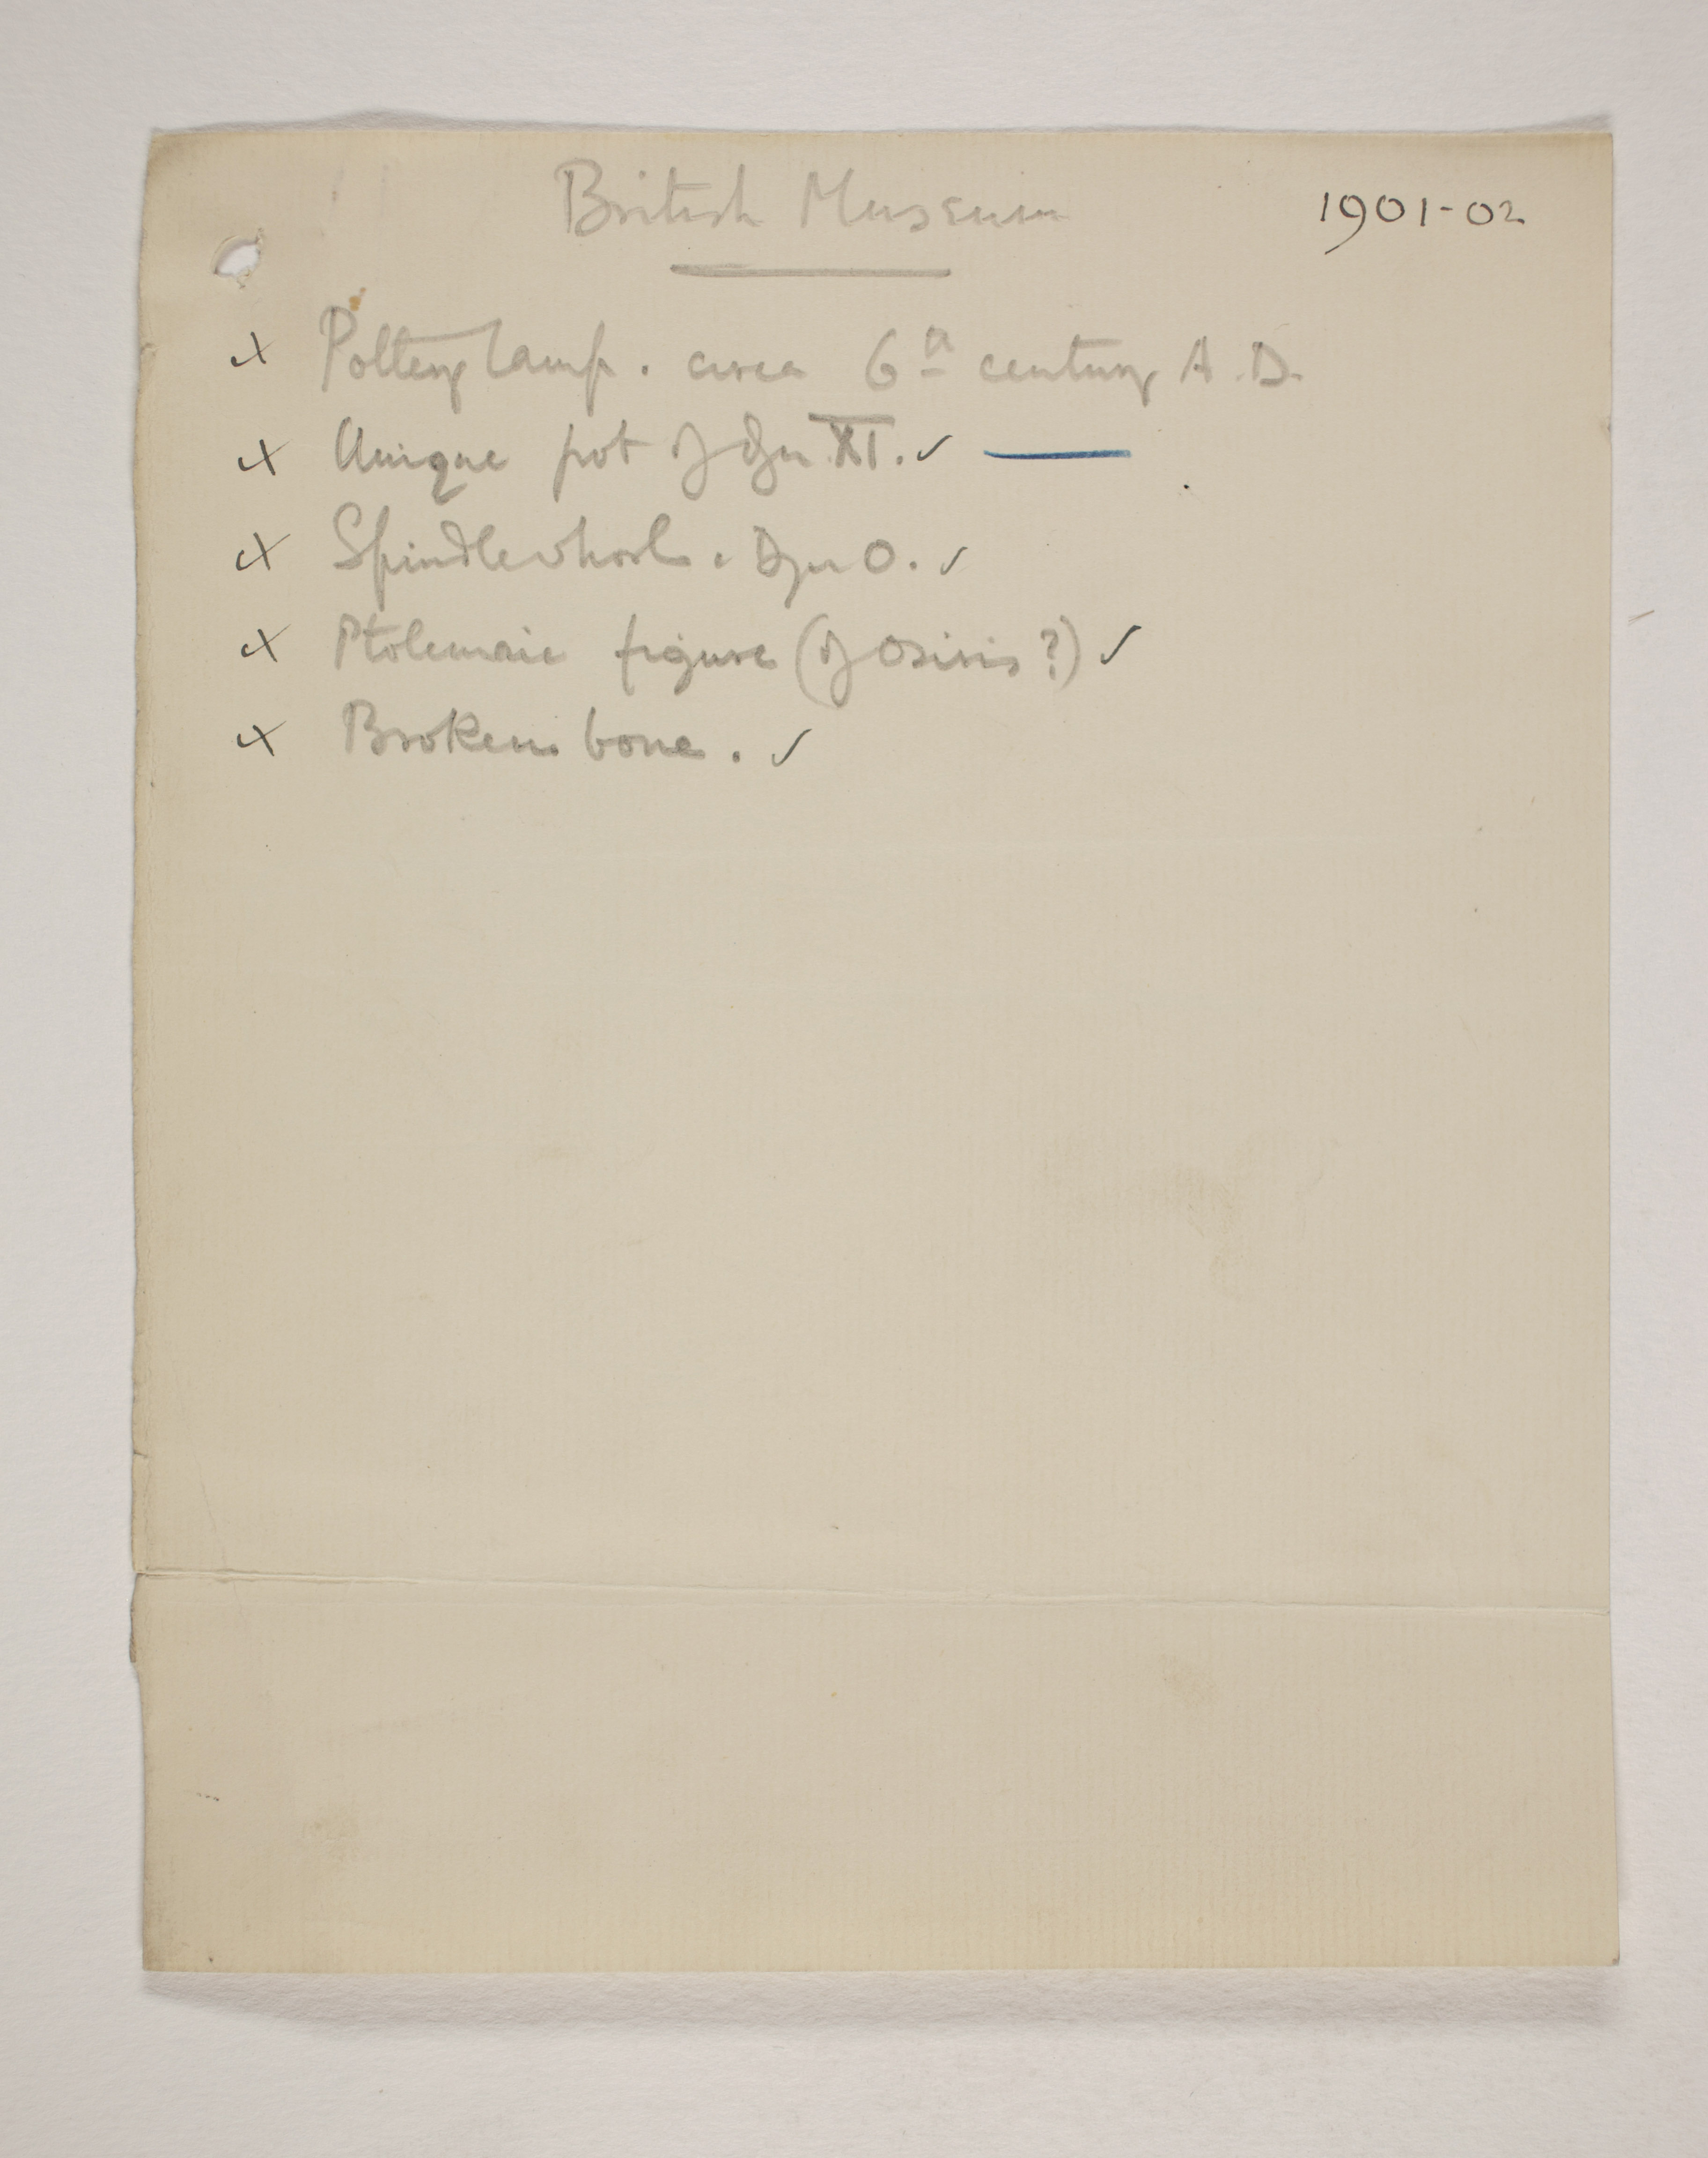 British Museum 1901-02
x Pottery lamp. circa 6th century A.D.
x Unique pot of Dyn XI. ✓ —
x Spindlewhorl. Dyn O. ✓
x Ptolemaic figure (of Osiris?) ✓
x Broken bone. ✓